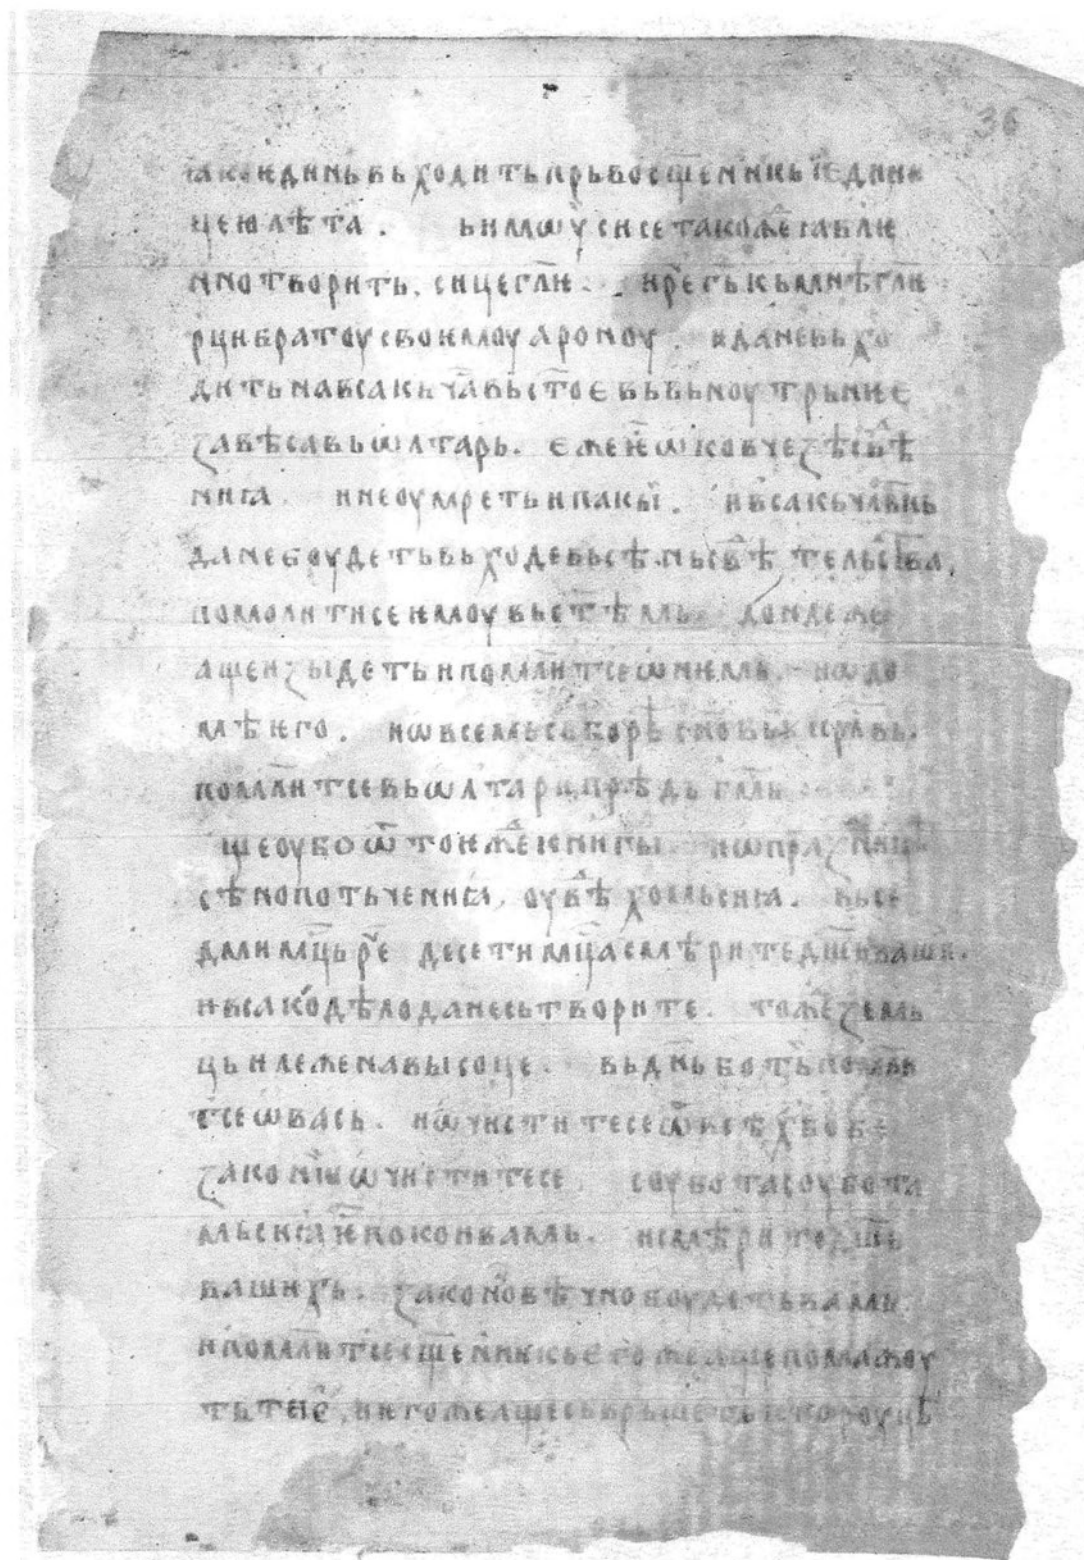 36
ꙗко ѥдинь вь ходить прьвосщ҃еникь ѥдин
цею лѣта . ьи мѡѷси се такожⷣе ꙗвлѥ
нно творить . сице гл҃ѥ . и рⷱ҇е гь кь мнѣ гл҃ѥ
рци братоу своѥмоу ароноу . и да не вь хо
дить на всакь ча҇ вь ст҃оѥ вь вьноутрьнѥѥ
завѣса вь ѡлтарь . ѥже ѥ҇ ѡ ковчезѣ свⷣѣ
ниꙗ . и не оумреть и пакы . и всакь чл҃вкь
да не боудеть вьходе вь сѣнь свⷣѣтельства ,
помолити се ѥмоу вь ст҃ѣмь . дондеже
аще изыдеть и помл҃ит се ѡ нѥмь . и ѡ до
мѣ ѥго . и ѡ всемь сьборѣ сн҃овь изр҃лвь .
помл҃ит се вь ѡлтари прѣдь гм҃ь
ще оубо ѿ тоиж҇е книгы . и ѡ празⷣницѣ
сѣнопотьчениꙗ , оувⷣѣ хомь сиꙗ . вь се
дми мц҇ь рⷱ҇е десети мц҇а смѣрите дш҃е ваше .
и всако дѣло да не сьтворите . тож҇е земль
ць и леже на высоце . вь дн҃ь бо ть помл҃и
т се ѡ вась . и ѡчистите се ѿ всѣхь бобе
законїи ѡчистите се соубота соубота
мьскиꙗ ѥ҇ покои вамь . и смѣрите дш҃ь
вашихь . законо вѣчно боудеть вамь .
и помл҃ит се сщ҃еникь ѥгоже аще помажоу
ть ти ѥ҇ , и ѥгоже аще сьврьшеть ... роуцѣ